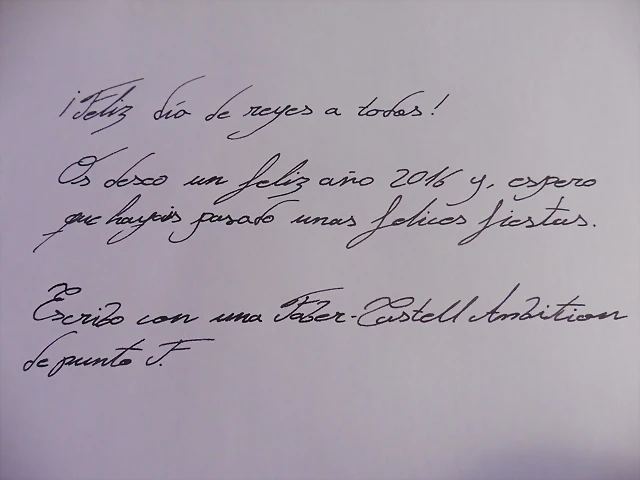 ¡Feliz día de reyes a todos!
Os deseo un feliz año 2016 y, espero
que hayais pasado unas felices fiestas.
Escribo con una Faber-Castell Ambition
de punto F.